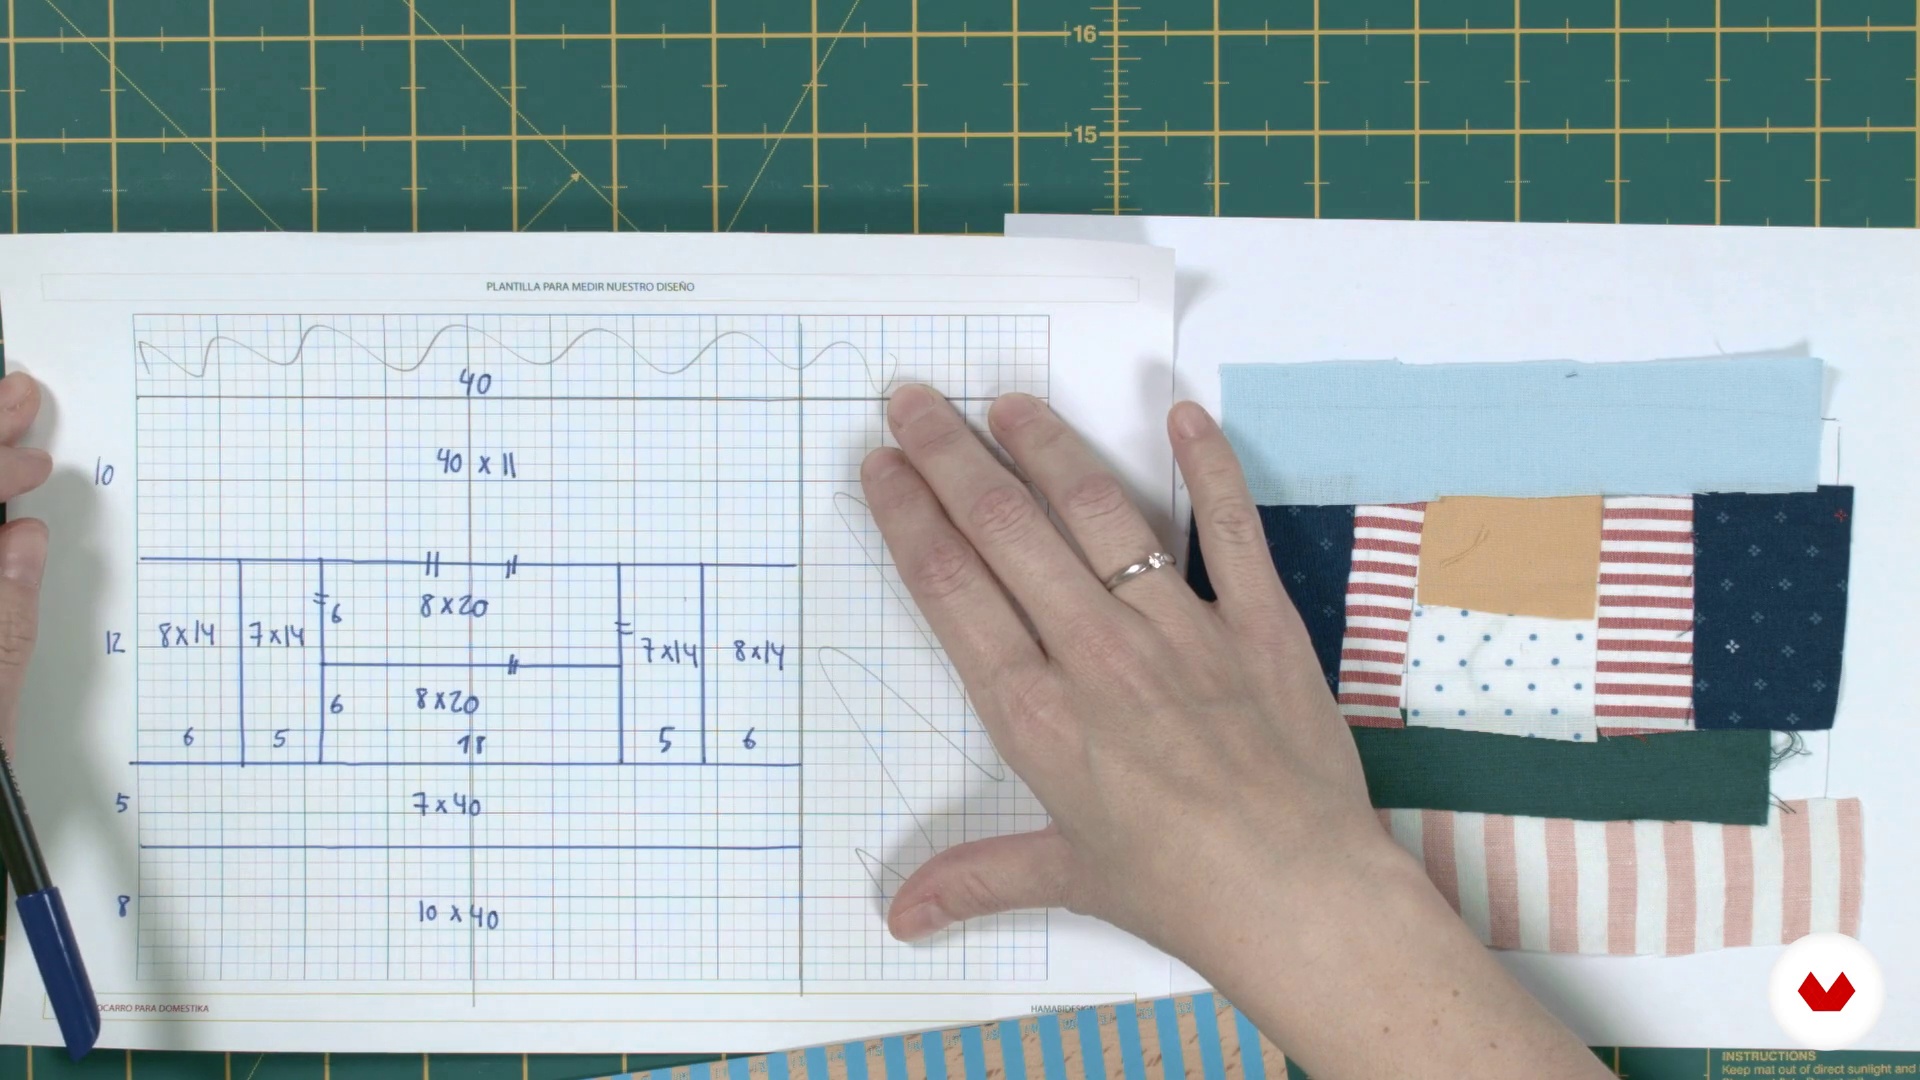 16
15
PLANTILLA PARA MEDIR NUESTRO DISEÑO
40
10
40 x 11
12
8x14
7x14
6
8x20
7x14
8x14
6
8x20
6
5
18
5
6
5
7x40
8
10 x 40
OCARRO PARA DOMESTIKA
HAMABIDESIGN
INSTRUCTIONS
Keep mat out of direct sunlight and